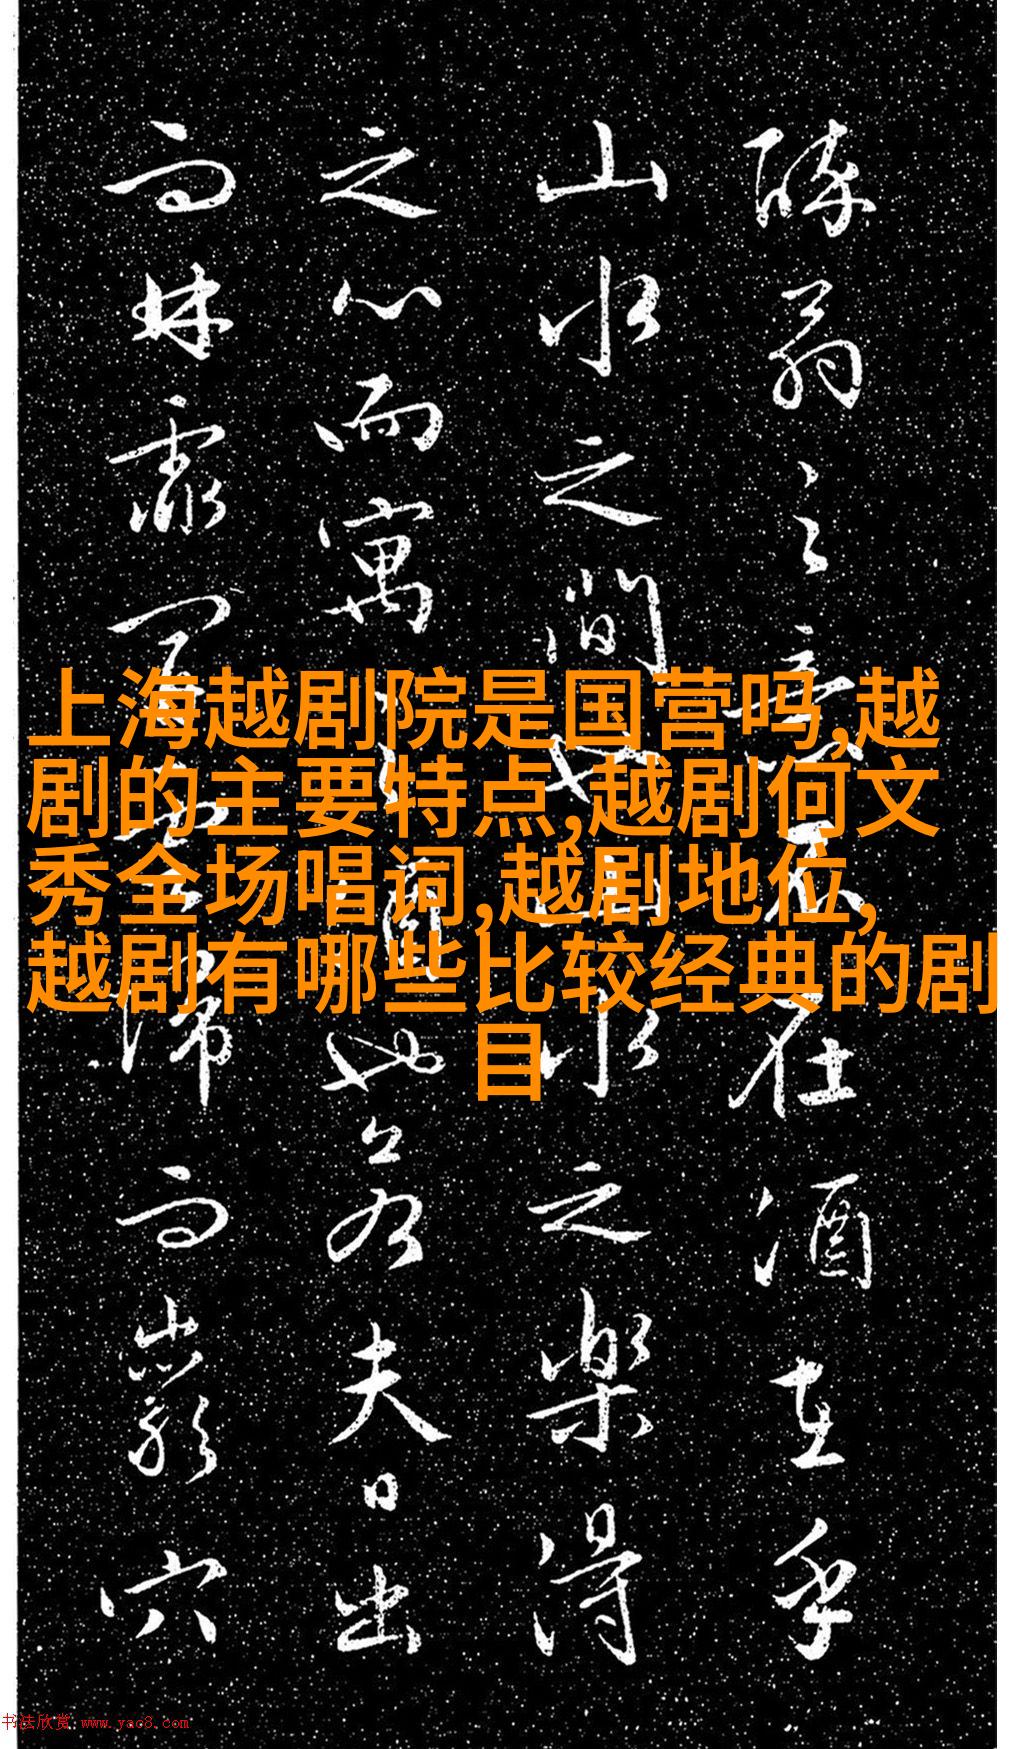 上海越剧院是国营吗,越
剧的主要特点,越剧何文
秀全场唱词,越剧地位,
越剧有哪些比较经典的剧
目
醉翁之意不在酒在乎
山水之間也山水之樂得
之心而寓之酒也若夫日出
而林霏開雲歸而巖穴
书法欣赏 www.yac8.com